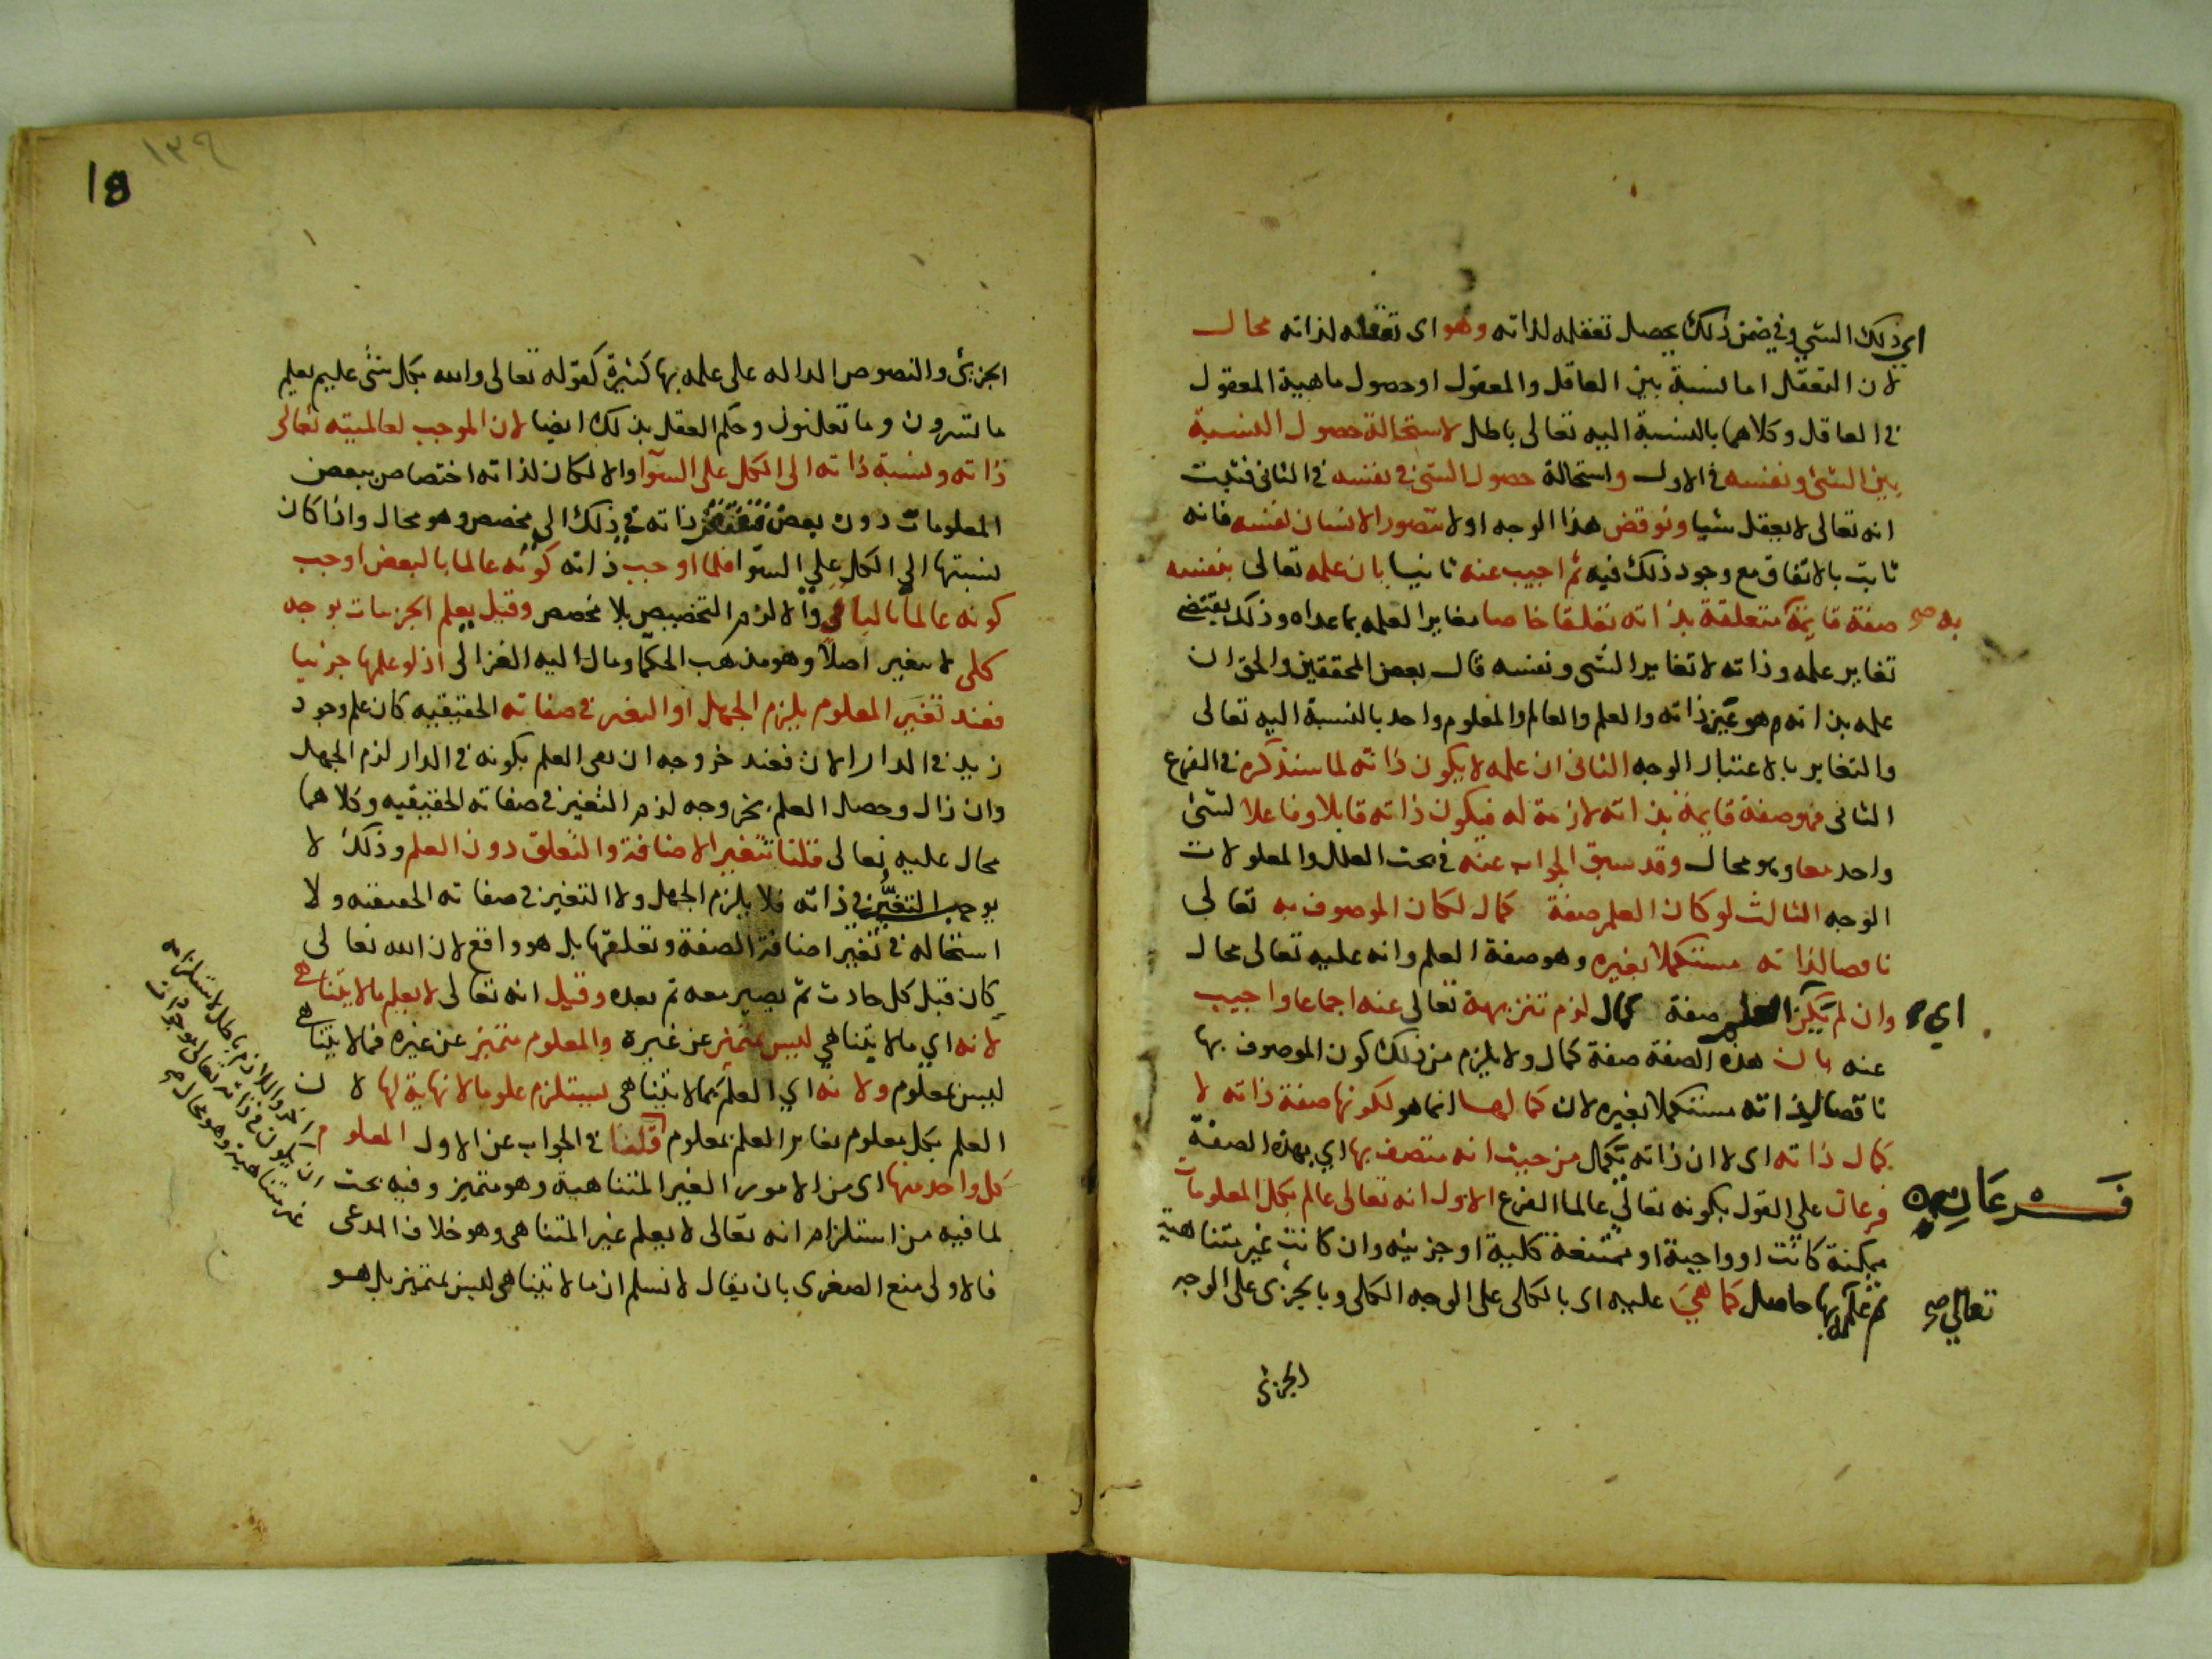 اي ذلك الشي وفي ضمن ذلك يحصل تعقله لذاته وهو اى تعقله لذاته محال
لان التعقل اما نسبة بين العاقل والمعقول او حصول ماهية المعقول
في العاقل وكلاهما بالنسبة اليه تعالى باطل لاستحالة حصول النسبة
بين الشئ ونفسه في الاول واستحالة حصول الشئ في نفسه في الثاني فثبت
انه تعالى لا يعقل شيا ونوقض هذا الوجه اولا بتصور الانسان نفسه فانه
ثابت بالاتفاق مع وجود ذلك فيه ثم اجيب عنه ثانيا بان علمه تعالى بنفسه
به صح
صفة قايمة متعلقة بذاته تعلقا خاصا مغايرا لعلمه بما عداه وذلك يقتضي
تغاير علمه وذاته لا تغاير الشى ونفسه قال بعض المحققين والحق ان
علمه بذاته هو عين ذاته والعلم والعالم والمعلوم واحد بالنسبة اليه تعالى
والتغاير بالاعتبار الوجه الثانى ان علمه لا يكون ذاته لما سنذكره في الفرع
الثانى فهو صفة قايمة بذاته لازمة له فيكون ذاته قابلا وفاعلا لشئ
واحد معا وهو محال وقد سبق الجواب عنه في بحث العلل والمعلولات
الوجه الثالث لو كان العلم صفة كمال لكان الموصوف به تعالى
ناقصا لذاته مستكملا بغيره وهو صفة العلم وانه عليه تعالى محال
اي
وان لم يكن العلم صفة كمال لزم تنزيهه تعالى عنه اجماعا واجيب
عنه بان هذه الصفة صفة كمال ولا يلزم من ذلك كون الموصوف بها
ناقصا لذاته مستكملا بغيره لان كمالها انما هو لكونها صفة ذاته لا
كمال ذاته اى لا ان ذاته تكمل من حيث انه متصف بها اي بهذه الصفة
فرعان
فرعان على القول بكونه تعالى عالما الفرع الاول انه تعالى عالم بكل المعلومات
ممكنة كانت او واجبة او ممتنعة كلية او جزئيه وان كانت غير متناهية
تعالى صح
ثم علمه بها حاصل كما هي عليه اى بالكلى على الوجه الكلى وبالجزئى على الوجه
الجزئ
١٣٩
18
الجزئى والنصوص الداله على علمه بها كثيرة كقوله تعالى والله بكل شئ عليم يعلم
ما تسرون وما تعلنون وحكم العقل بذلك ايضا لان الموجب لعالميته تعالى
ذاته ونسبة ذاته الى الكل على السوآ والا لكان لذاته اختصاص ببعض
المعلومات دون بعض فتفتقر ذاته في ذلك الى مخصص وهو محال واذا كان
نسبتها الى الكل على السوا فلما اوجب ذاته كونه عالما بالبعض اوجب
كونه عالما بالباقي والا لزم التخصيص بلا مخصص وقيل يعلم الجزييات بوجه
كلى لا يتغير اصلا وهو مذهب الحكما ومال اليه الغزالى اذ لو علمها جزئيا
فعند تغير المعلوم يلزم الجهل او التغير في صفاته الحقيقيه كان علم وجود
زيد في الدار الان فعند خروجه ان بقى العلم بكونه في الدار لزم الجهل
وان زال وحصل العلم بخروجه لزم التغير في صفاته الحقيقيه وكلاهما
محال عليه تعالى قلنا تتغير الاضافة والتعلق دون العلم وذلك لا
يوجب التغير في ذاته فلا يلزم الجهل ولا التغير في صفاته الحقيقته ولا
استحاله في تغير اضافة الصفة وتعلقها بل هو واقع لان الله تعالى
كان قبل كل حادث ثم يصير معه ثم بعده وقيل انه تعالى لا يعلم ما لا يتناهى
لانه اي ما لا يتناهى ليس متميز عن غيره والمعلوم متميز عن غيره فما لا يتناهى
ليس بمعلوم ولانه اي العلم بما لا يتناهى يستلزم علوما لا نهاية لها لان
العلم بكل معلوم يغاير العلم بمعلوم قلنا في الجواب عن الاول المعلوم
كل واحد منها اى من الامور الغير المتناهية وهو متميز وفيه بحث
لما فيه من استلزام انه تعالى لا يعلم غير المتناهى وهو خلاف المدعى
فالاولى منع الصغرى بان يقال لا نسلم ان ما لا يتناهى ليس بمتميز بل هو
اخر واللازم باطل لاستلزامه
ان يكون في ذاته تعالى موجودات
غير متناهية وهو محال صح